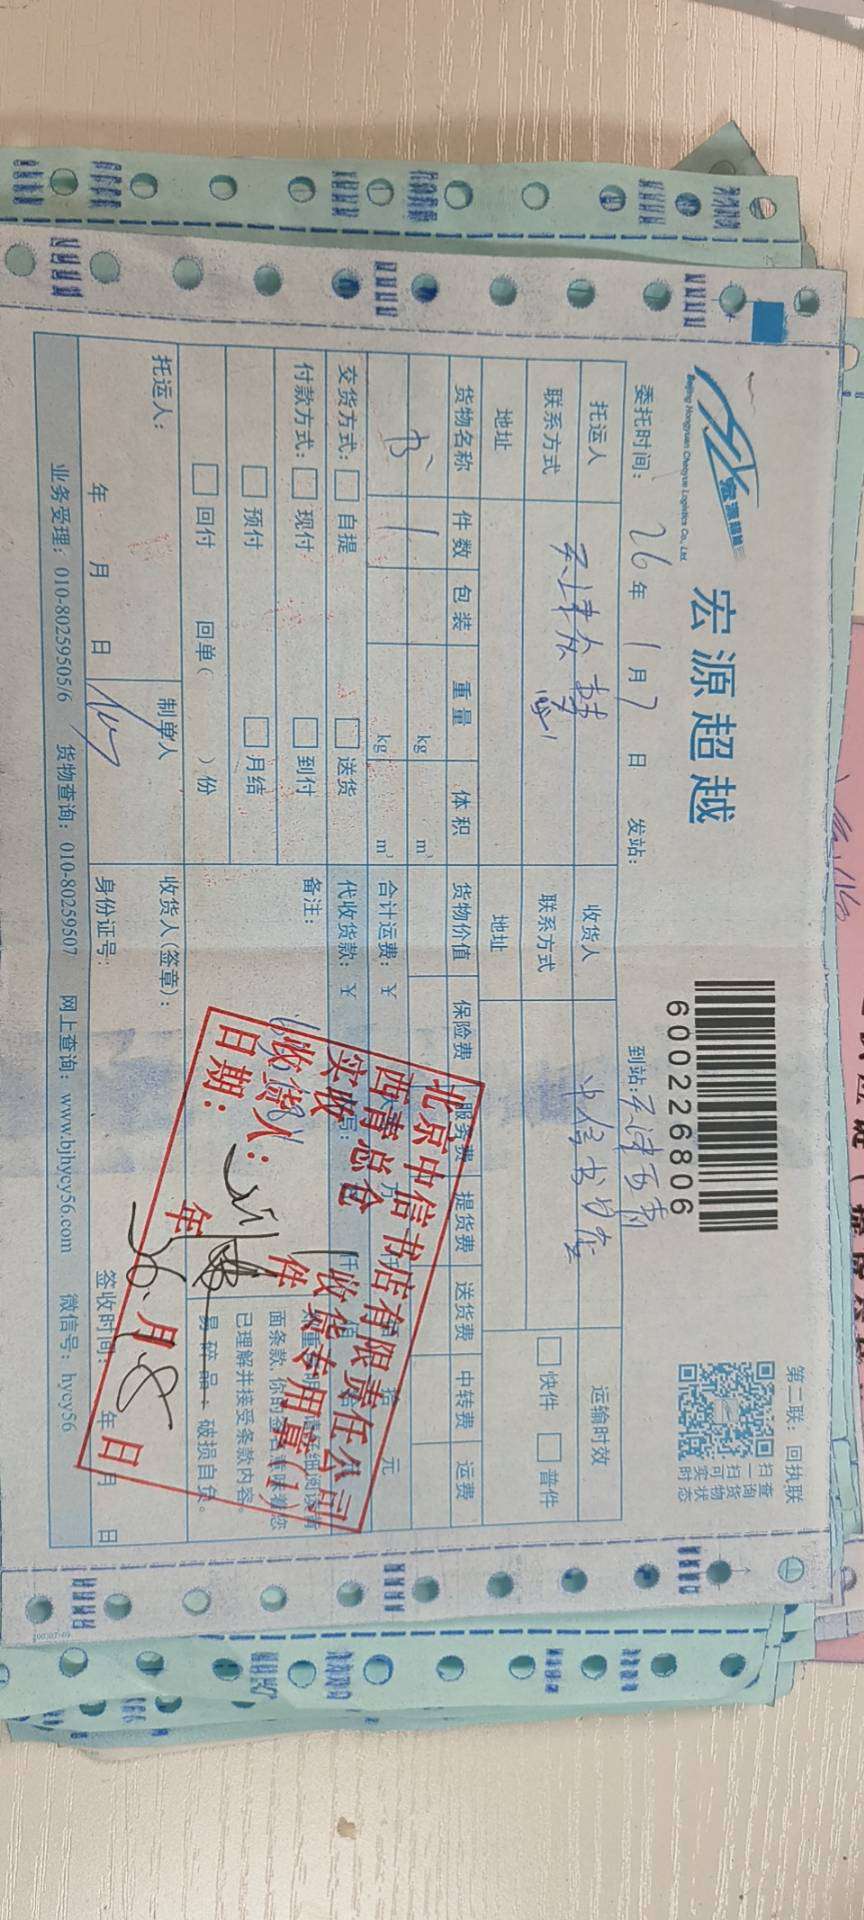 宏源超越
Beijing Hongyuan Chaoyue Logistics Co., Ltd.
宏源超越
600226806
第二联：回执联
扫一扫可实时
查询货物状态
委托时间：26年1月7日 发站： 到站：天津西青
托运人 收货人 中信书店 运输时效
联系方式 联系方式 快件 普件
地址 地址
货物名称 件数 包装 重量 体积 货物价值 保险费 服务费 提货费 送货费 中转费 运费
kg m³
书 1 kg m³ 合计运费：￥ 元
交货方式： 自提 送货 代收货款：￥
付款方式： 现付 到付 备注：
预付 月结
回付 回单( )份
面条款，你的
已理解并接受条款内容。
易碎品，破损自负。
托运人： 制单人 收货人(签章)：
年 月 日 身份证号： 签收时间： 年 月 日
业务受理：010-80259505/6 货物查询：010-80259507 网上查询：www.bjhycy56.com 微信号：hycy56
北京中信书店有限责任公司
西青总仓 收货专用章
实收 件
收货人：
日期： 年 月 8 日